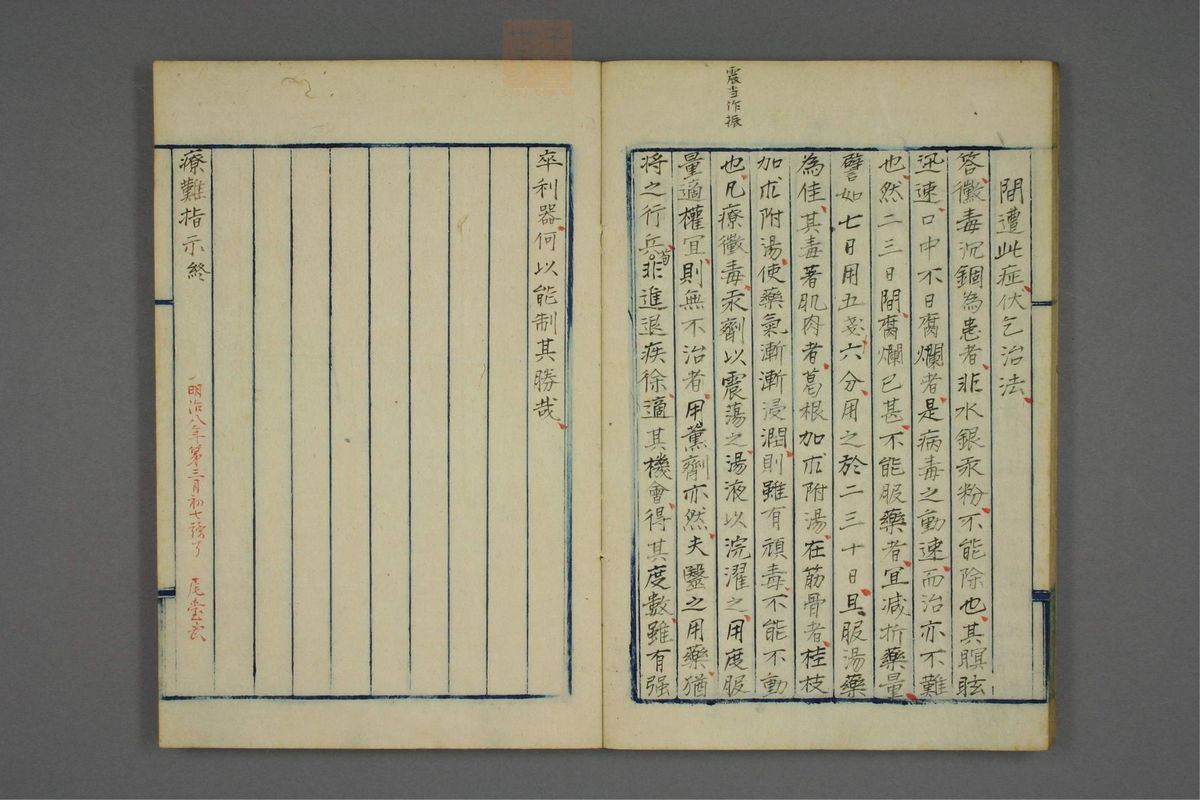 震当作振
間遭此症伏乞治法
答黴毒沉錮為患者非水銀汞粉不能除也其瞑眩
迅速口中不日腐爛者是病毒之動速而治亦不難
也然二三日間腐爛已甚不能服藥者宜減折藥量
譬如七日用五茎六分用之於二三十日且服湯藥
為佳其毒著肌肉者葛根加朮附湯在筋骨者桂枝
加朮附湯使藥氣漸漸浸潤則雖有頑毒不能不動
也凡療黴毒汞劑以震蕩之湯液以浣濯之用度服
量適權宜則無不治者用薰劑亦然夫醫之用藥猶
将之行兵苟非進退疾徐適其機會得其度數雖有强
卒利器何以能制其勝哉
療難指示終
明治八年第三月初七